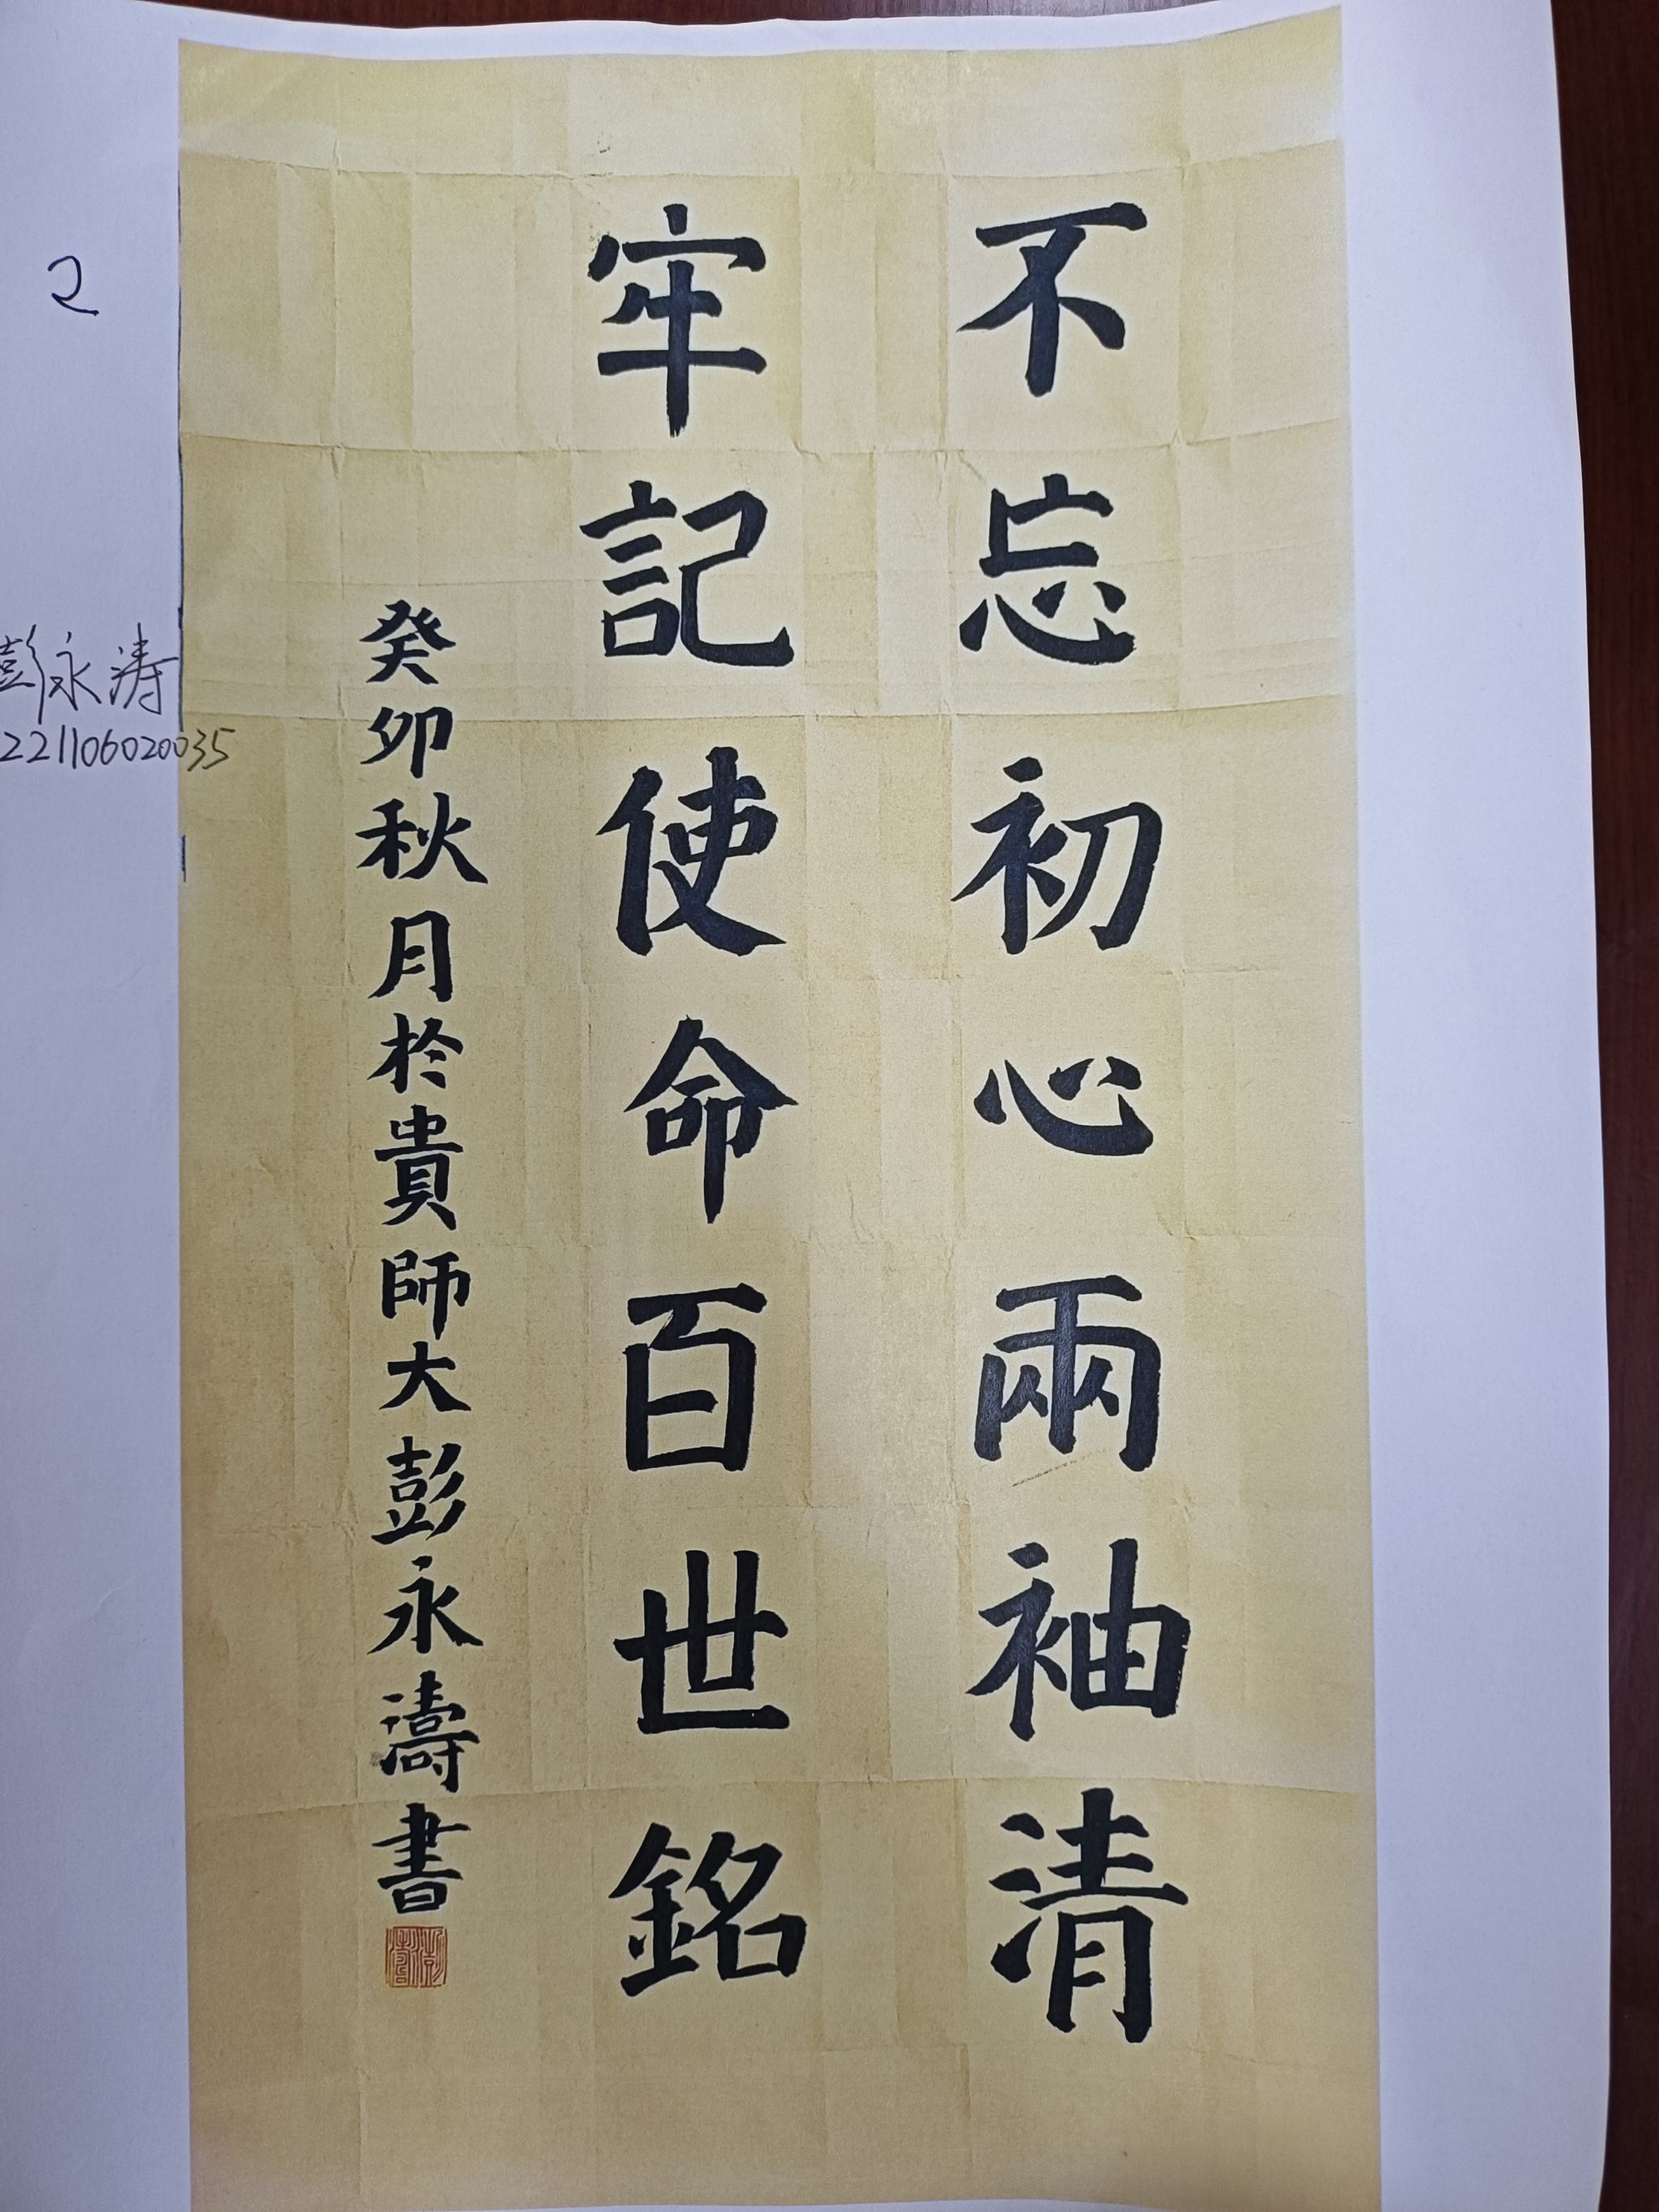 不忘初心兩袖清
牢記使命百世銘
癸卯秋月於貴師大彭永濤書
2
彭永涛
221106020035